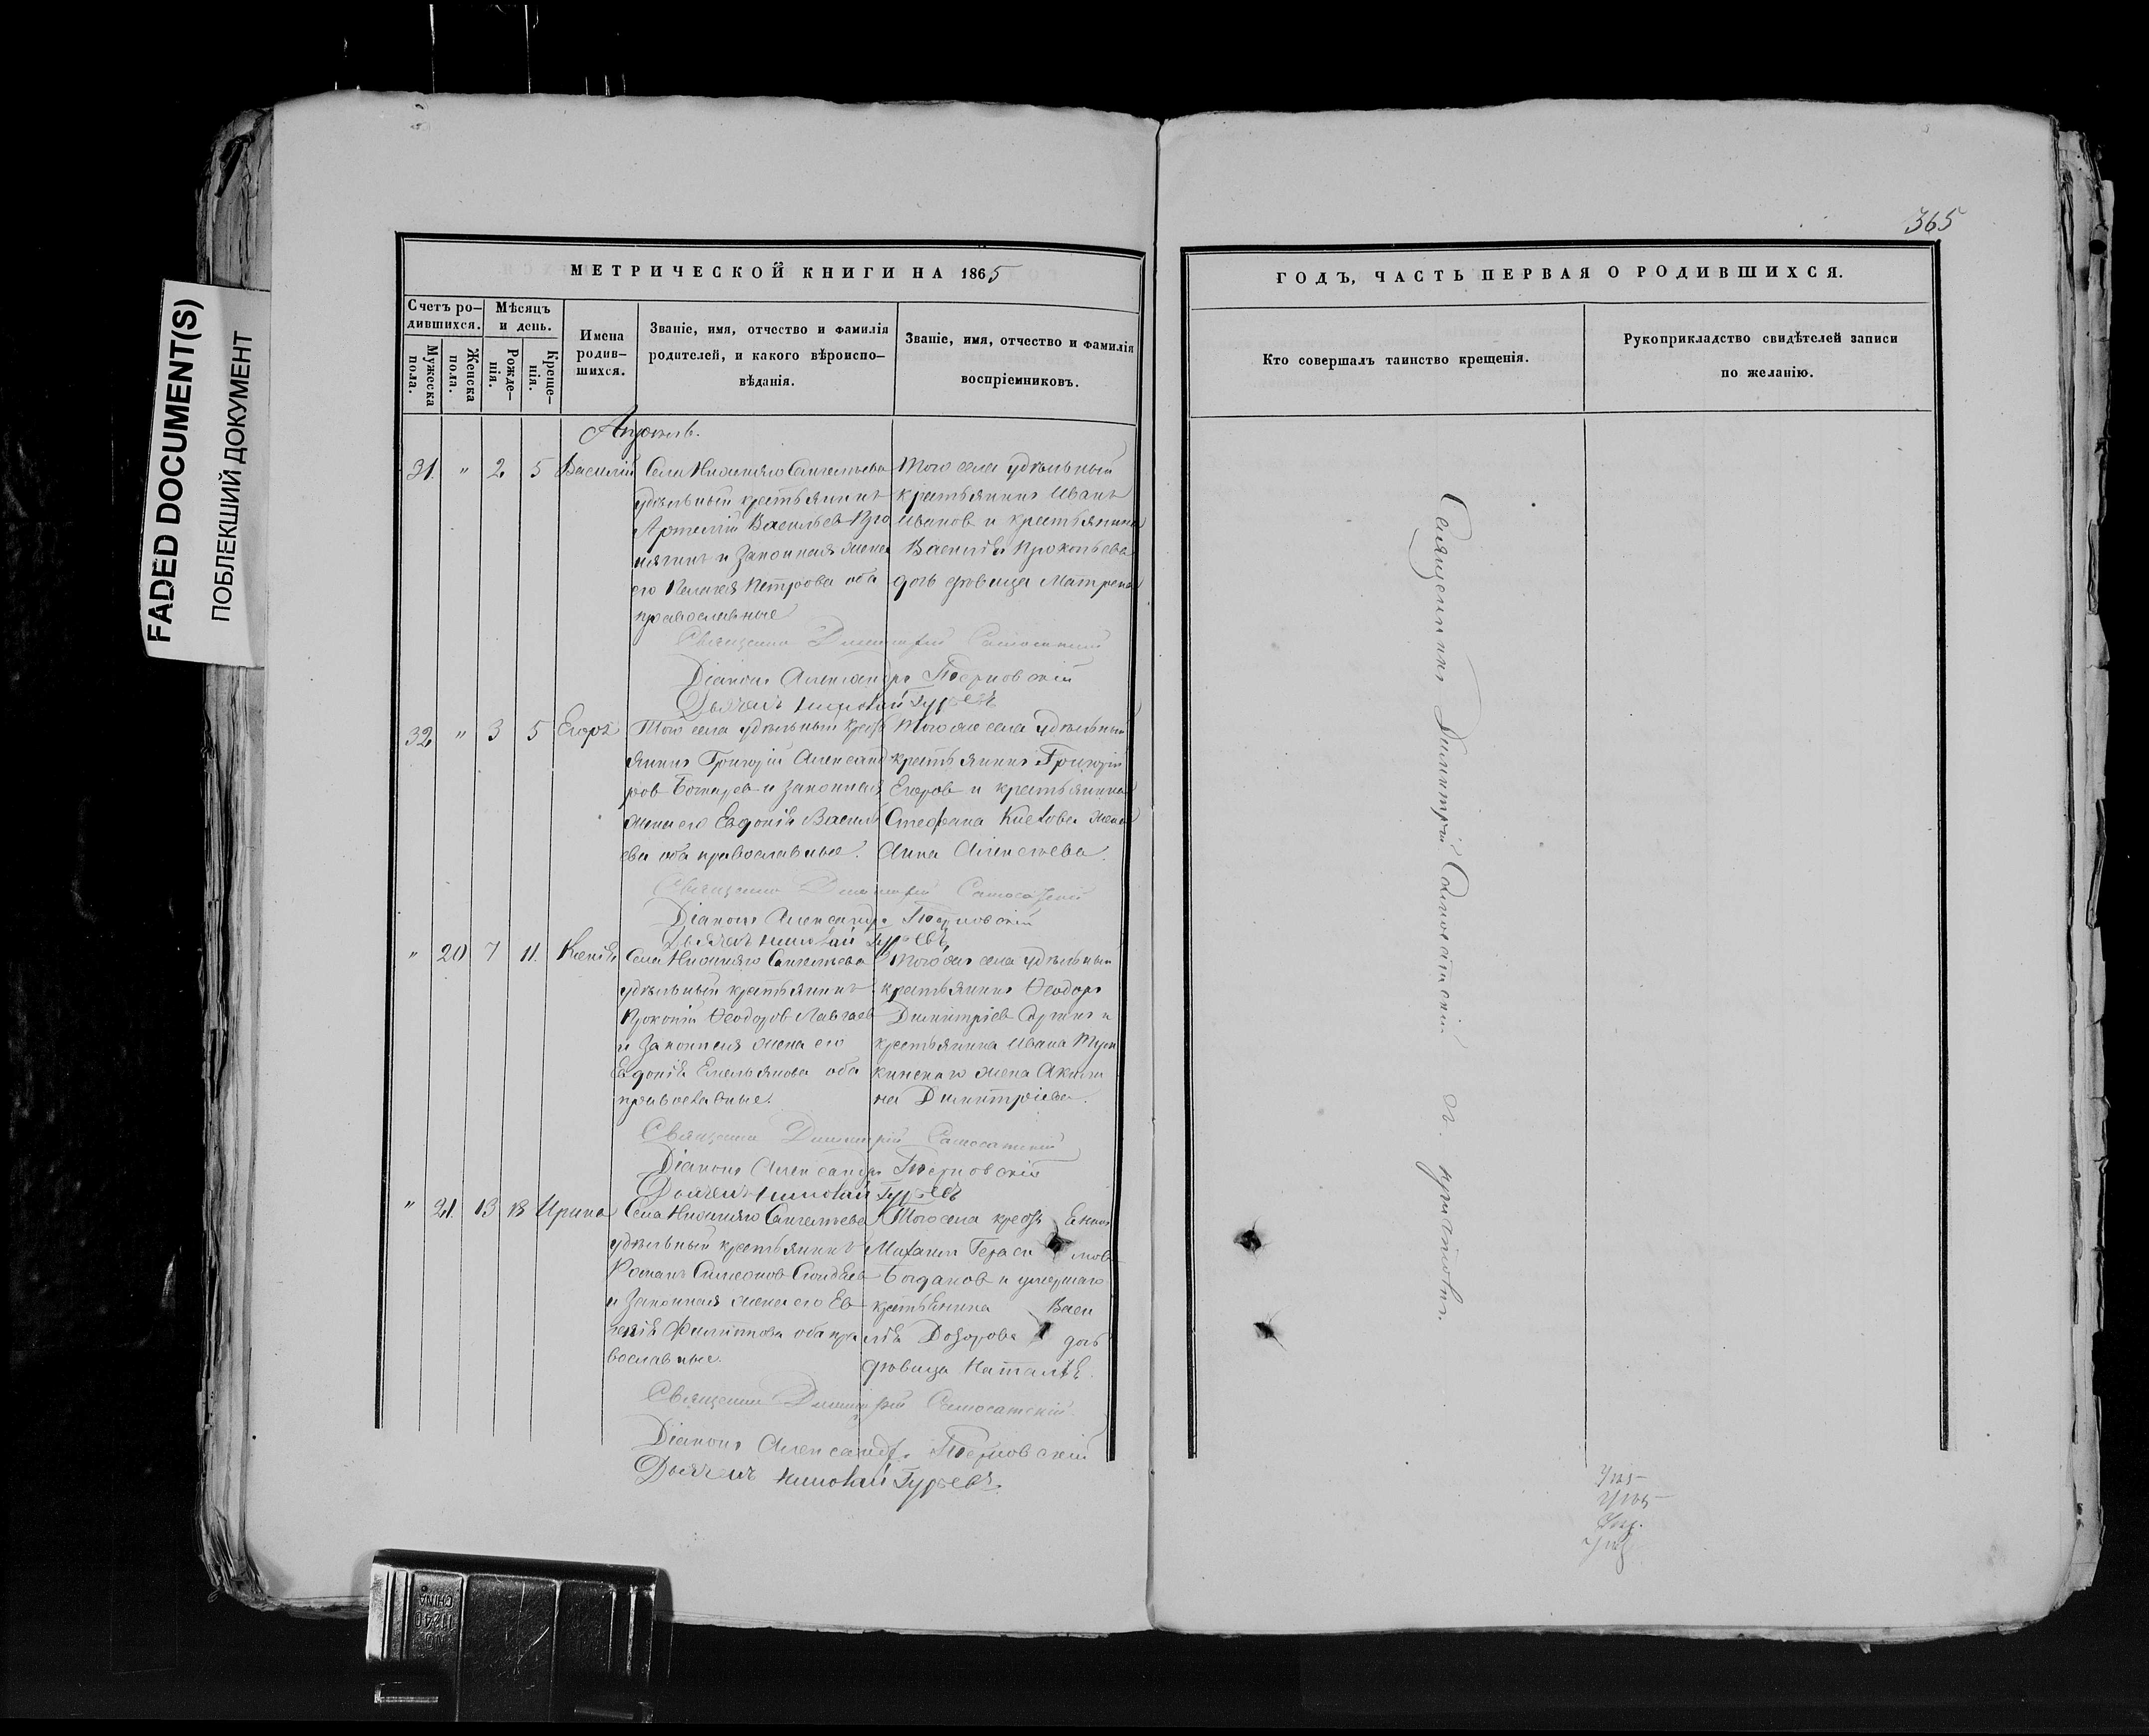 FADED DOCUMENT(S)
ПОБЛЕКШИЙ ДОКУМЕНТ
365
МЕТРИЧЕСКОЙ КНИГИ НА 1865
ГОДЪ, ЧАСТЬ ПЕРВАЯ О РОДИВШИХСЯ.
Счетъ ро-
дившихся.
Мужеска
пола.
Женска
пола.
Мѣсяцъ
и день.
Рожде-
нія.
Креще-
нія.
Имена
родив-
шихся.
Званіе, имя, отчество и фамилія
родителей, и какого вѣроиспо-
вѣданія.
Званіе, имя, отчество и фамилія
воспріемниковъ.
Кто совершалъ таинство крещенія.
Рукоприкладство свидѣтелей записи
по желанію.
Апрель.
31. " 2 5 Василій
Села Нижняго
удѣльный крестьянинъ
Артемій Васильев
и законная жена
его Пелагея Петрова оба
православные
Того села удѣльный
крестьянинъ Иванъ
Иванов и крестьянина
Василія Прокопьева
дочь дѣвица Матрена
Священно Димитрій Самосатскій
Діаконъ Александръ Терновскій
Дьячекъ Николай Гурьевъ
32 " 3 5 Егоръ
Того села удѣльный кресть
янинъ Григорій Александ
ров и законная
жена его Евдокія Василь
ева оба православные.
Того же села удѣльный
крестьянинъ Григорій
Егоров и крестьянина
Стефана жена
Анна Алексѣева.
Священно Димитрій Самосатскій
Діаконъ Александръ Терновскій
Дьячекъ Николай Гурьевъ
" 20 7 11. Ксенія
Села Нижняго
удѣльный крестьянинъ
Прокопій Ѳеодоров
и законная жена его
Евдокія Емельянова оба
православные.
Того же села удѣльный
крестьянинъ Ѳеодоръ
Димитріев и
крестьянина Ивана
жена Акили
на Димитріева.
Священно Димитрій Самосатскій
Діаконъ Александръ Терновскій
Дьячекъ Николай Гурьевъ
" 21. 13 18 Ирина
Села Нижняго
удѣльный крестьянинъ
Романъ Симеонов
и законная жена его Ев
генія Филиппова оба пра
вославные.
Того села крестьянинъ
Михаилъ Гераси мов
Богданов и умершаго
крестьянина Васи
лія Дозорова дочь
дѣвица Наталія.
Священно Димитрій Самосатскій
Діаконъ Александръ Терновскій
Дьячекъ Николай Гурьевъ.
Священникъ Димитрій Самосатскій съ причтомъ.